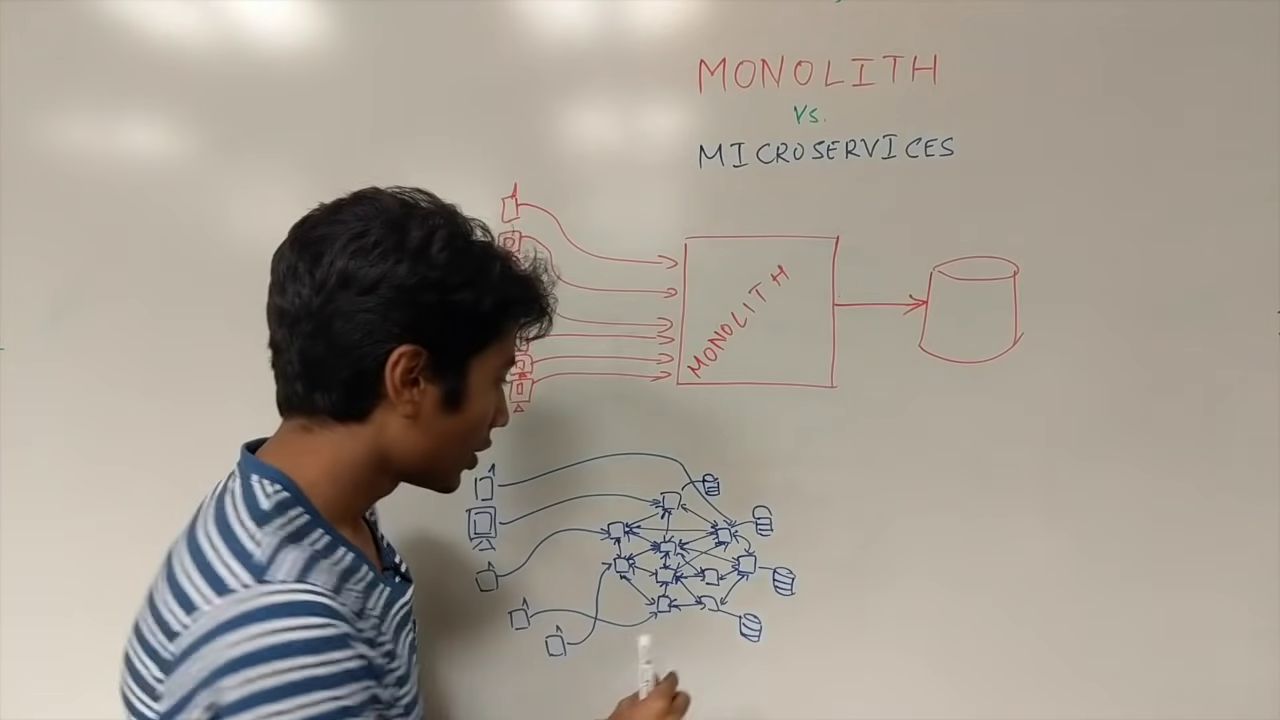 MONOLITH
Vs.
MICROSERVICES
MONOLITH